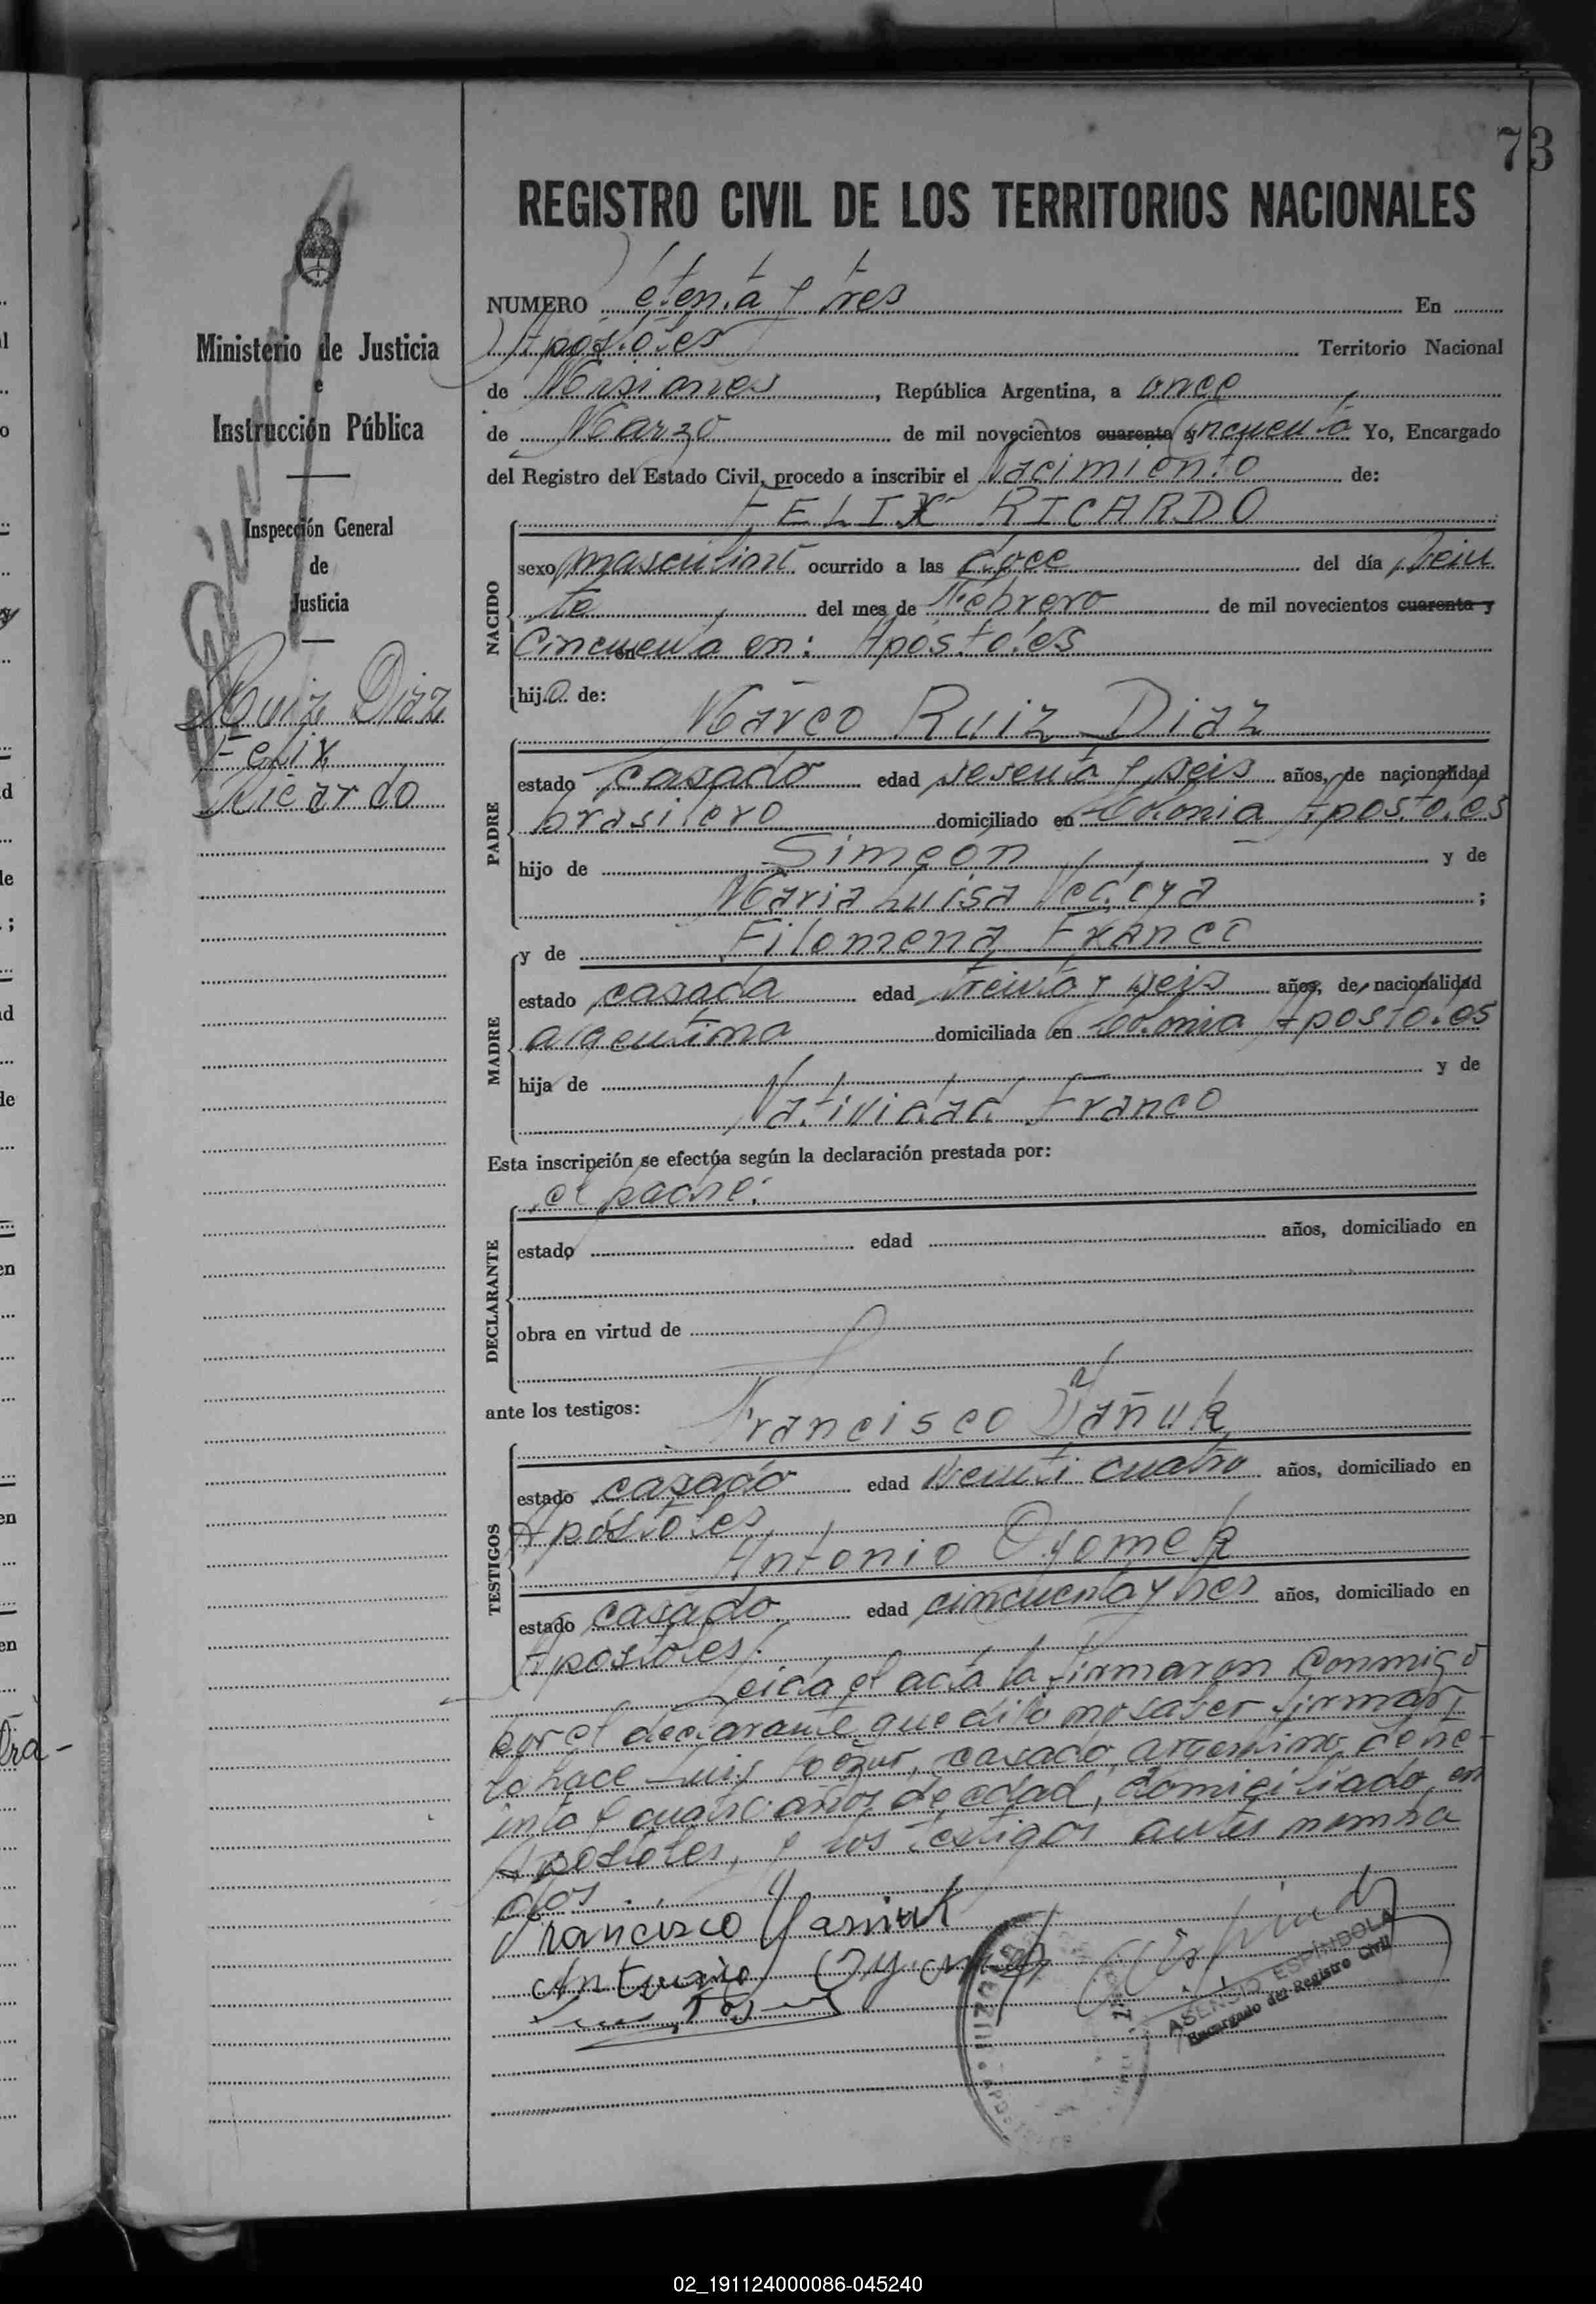 73
REGISTRO CIVIL DE LOS TERRITORIOS NACIONALES
NUMERO Setenta y tres En
Apóstoles Territorio Nacional
de Misiones, República Argentina, a once
de Marzo de mil novecientos cuarenta y cincuenta Yo, Encargado
del Registro del Estado Civil, procedo a inscribir el Nacimiento de:
FELIX RICARDO
NACIDO
sexo masculino ocurrido a las doce del día Vein
te del mes de Febrero de mil novecientos cuarenta y
Cincuenta en: Apostoles
hijo de:
Marco Ruiz Diaz
PADRE
estado casado edad sesenta y seis años, de nacionalidad
brasilero domiciliado en Colonia Apostoles
hijo de Simeon y de
Maria Luisa ;
MADRE
y de Filomena Franco
estado casada edad treinta y seis años, de nacionalidad
argentina domiciliada en Colonia Apostoles
hija de y de
Natividad Franco
Esta inscripción se efectúa según la declaración prestada por:
el padre.
DECLARANTE
estado edad años, domiciliado en
obra en virtud de
ante los testigos:
Francisco Yañuk
TESTIGOS
estado casado edad veinti cuatro años, domiciliado en
Apóstoles
Antonio
estado casado edad cincuenta y tres años, domiciliado en
Apostoles.
Leida el acta la firmaron Conmigo
por el declarante que dijo no saber firmar
lo hace Luis casado, argentino, de tre-
inta y cuatro años de edad, domiciliado en
Apostoles, y los testigos antes nombra
dos
Francisco Yasniuk
Antonio
ASENCIO ESPÍNDOLA
Encargado del Registro Civil
Ministerio de Justicia
e
Instrucción Pública
Inspección General
de
Justicia
Ruiz Diaz
Felix
Ricardo
02_191124000086-045240